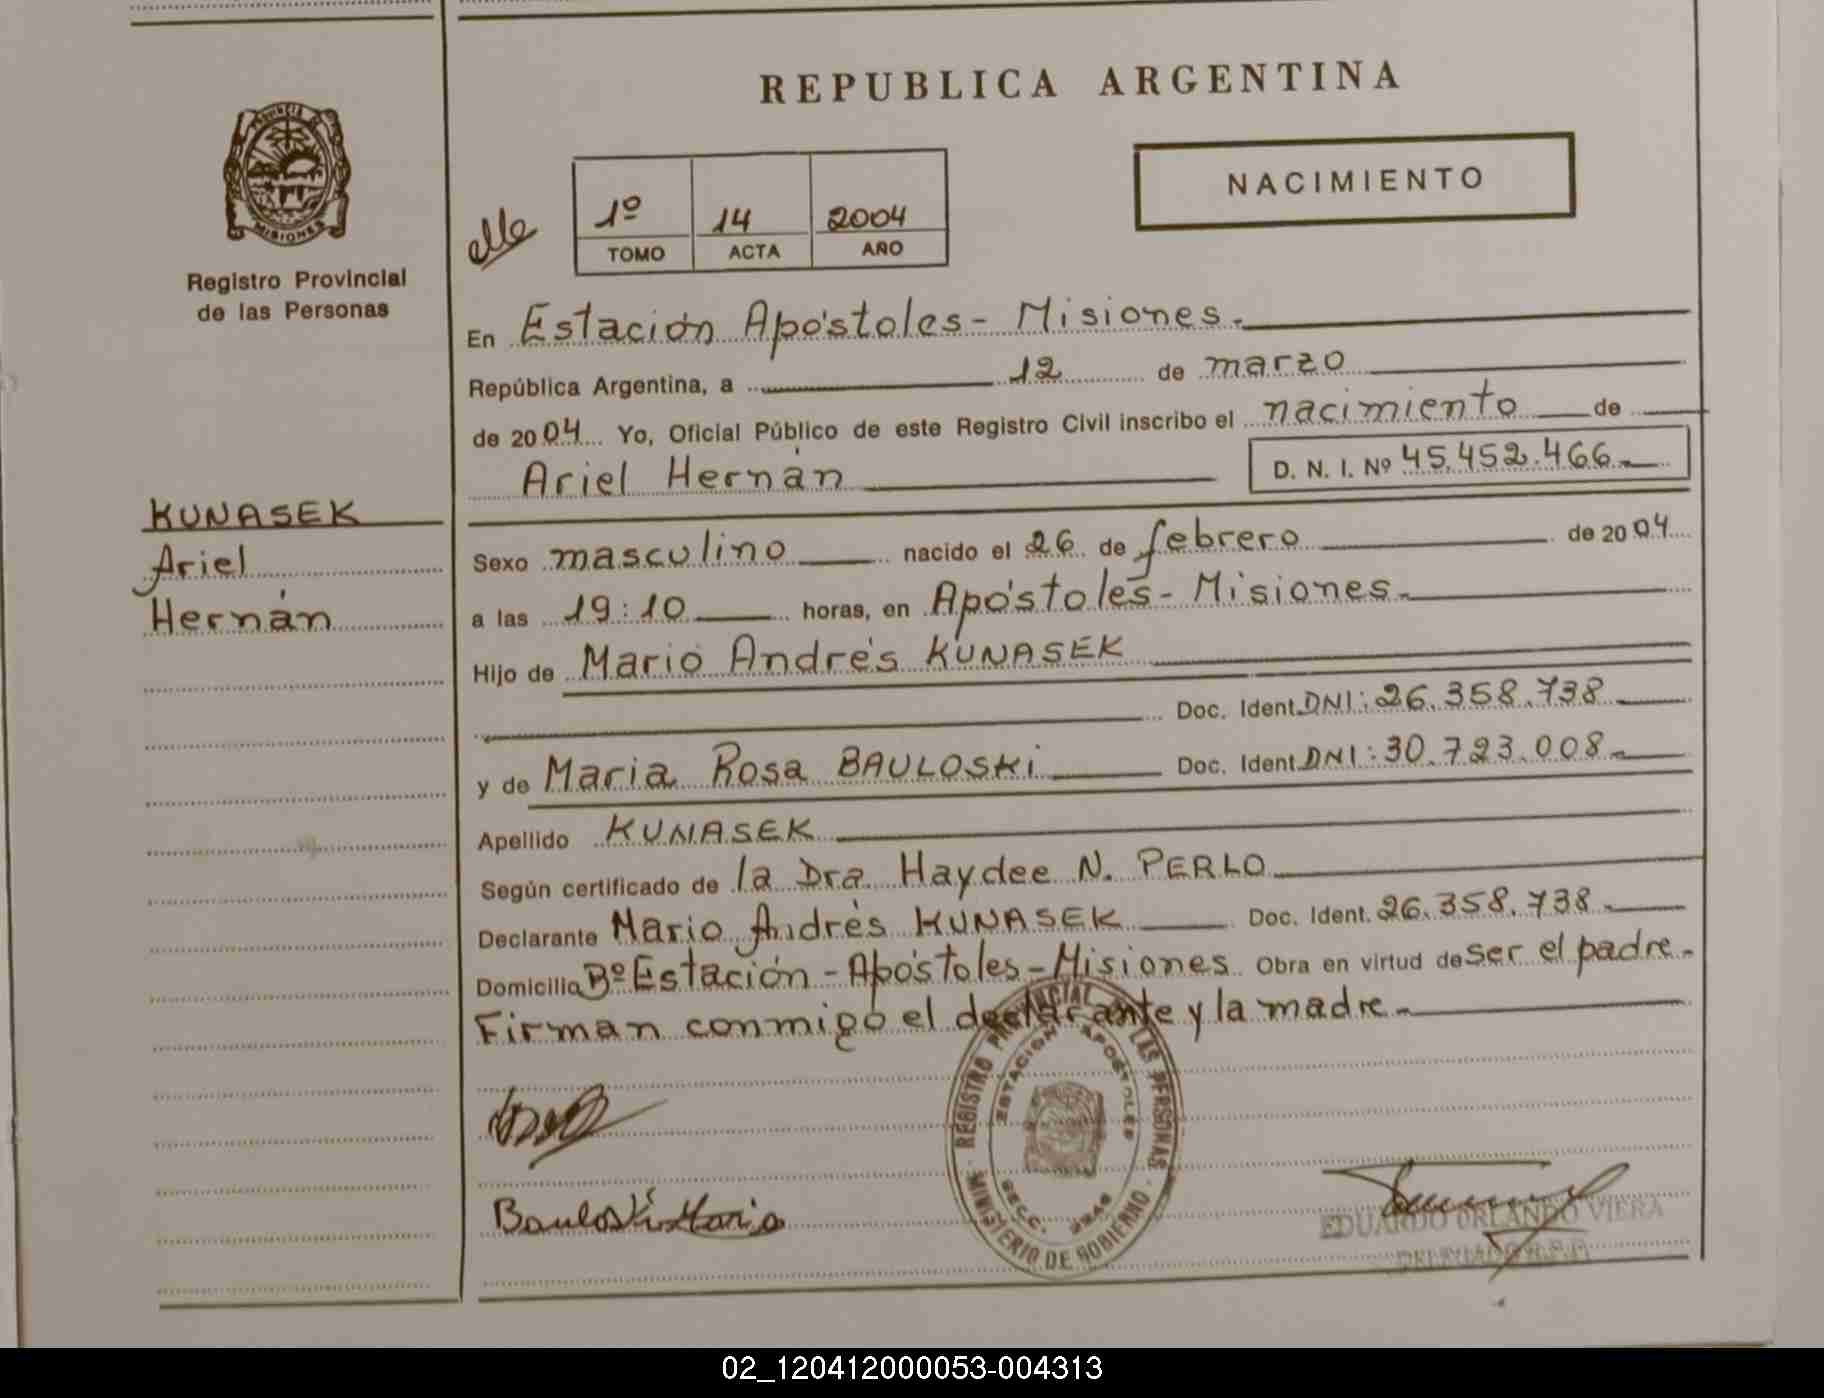 REPUBLICA ARGENTINA
NACIMIENTO
1º 14 2004
TOMO ACTA AÑO
PROVINCIA DE
MISIONES
Registro Provincial
de las Personas
En Estación Apóstoles - Misiones.
República Argentina, a 12 de marzo
de 2004 Yo, Oficial Público de este Registro Civil inscribo el nacimiento de
Ariel Hernán D. N. I. Nº 45.452.466
KUNASEK
Ariel
Hernán
Sexo masculino nacido el 26 de febrero de 2004
a las 19:10 horas, en Apóstoles - Misiones
Hijo de Mario Andrés KUNASEK
Doc. Ident. DNI: 26.358.738
y de Maria Rosa BAULOSKi Doc. Ident. DNI: 30.723.008
Apellido KUNASEK
Según certificado de la Dra Haydee N. PERLO
Declarante Mario Andrés KUNASEK Doc. Ident. 26.358.738
Domicilio Bº Estación - Apóstoles - Misiones Obra en virtud de ser el padre.
Firman conmigo el declarante y la madre
REGISTRO PROVINCIAL DE LAS PERSONAS
ESTACION APOSTOLES
SECC.
MINISTERIO DE GOBIERNO
Bauloski Maria
EDUARDO ORLANDO VIERA
02_120412000053-004313